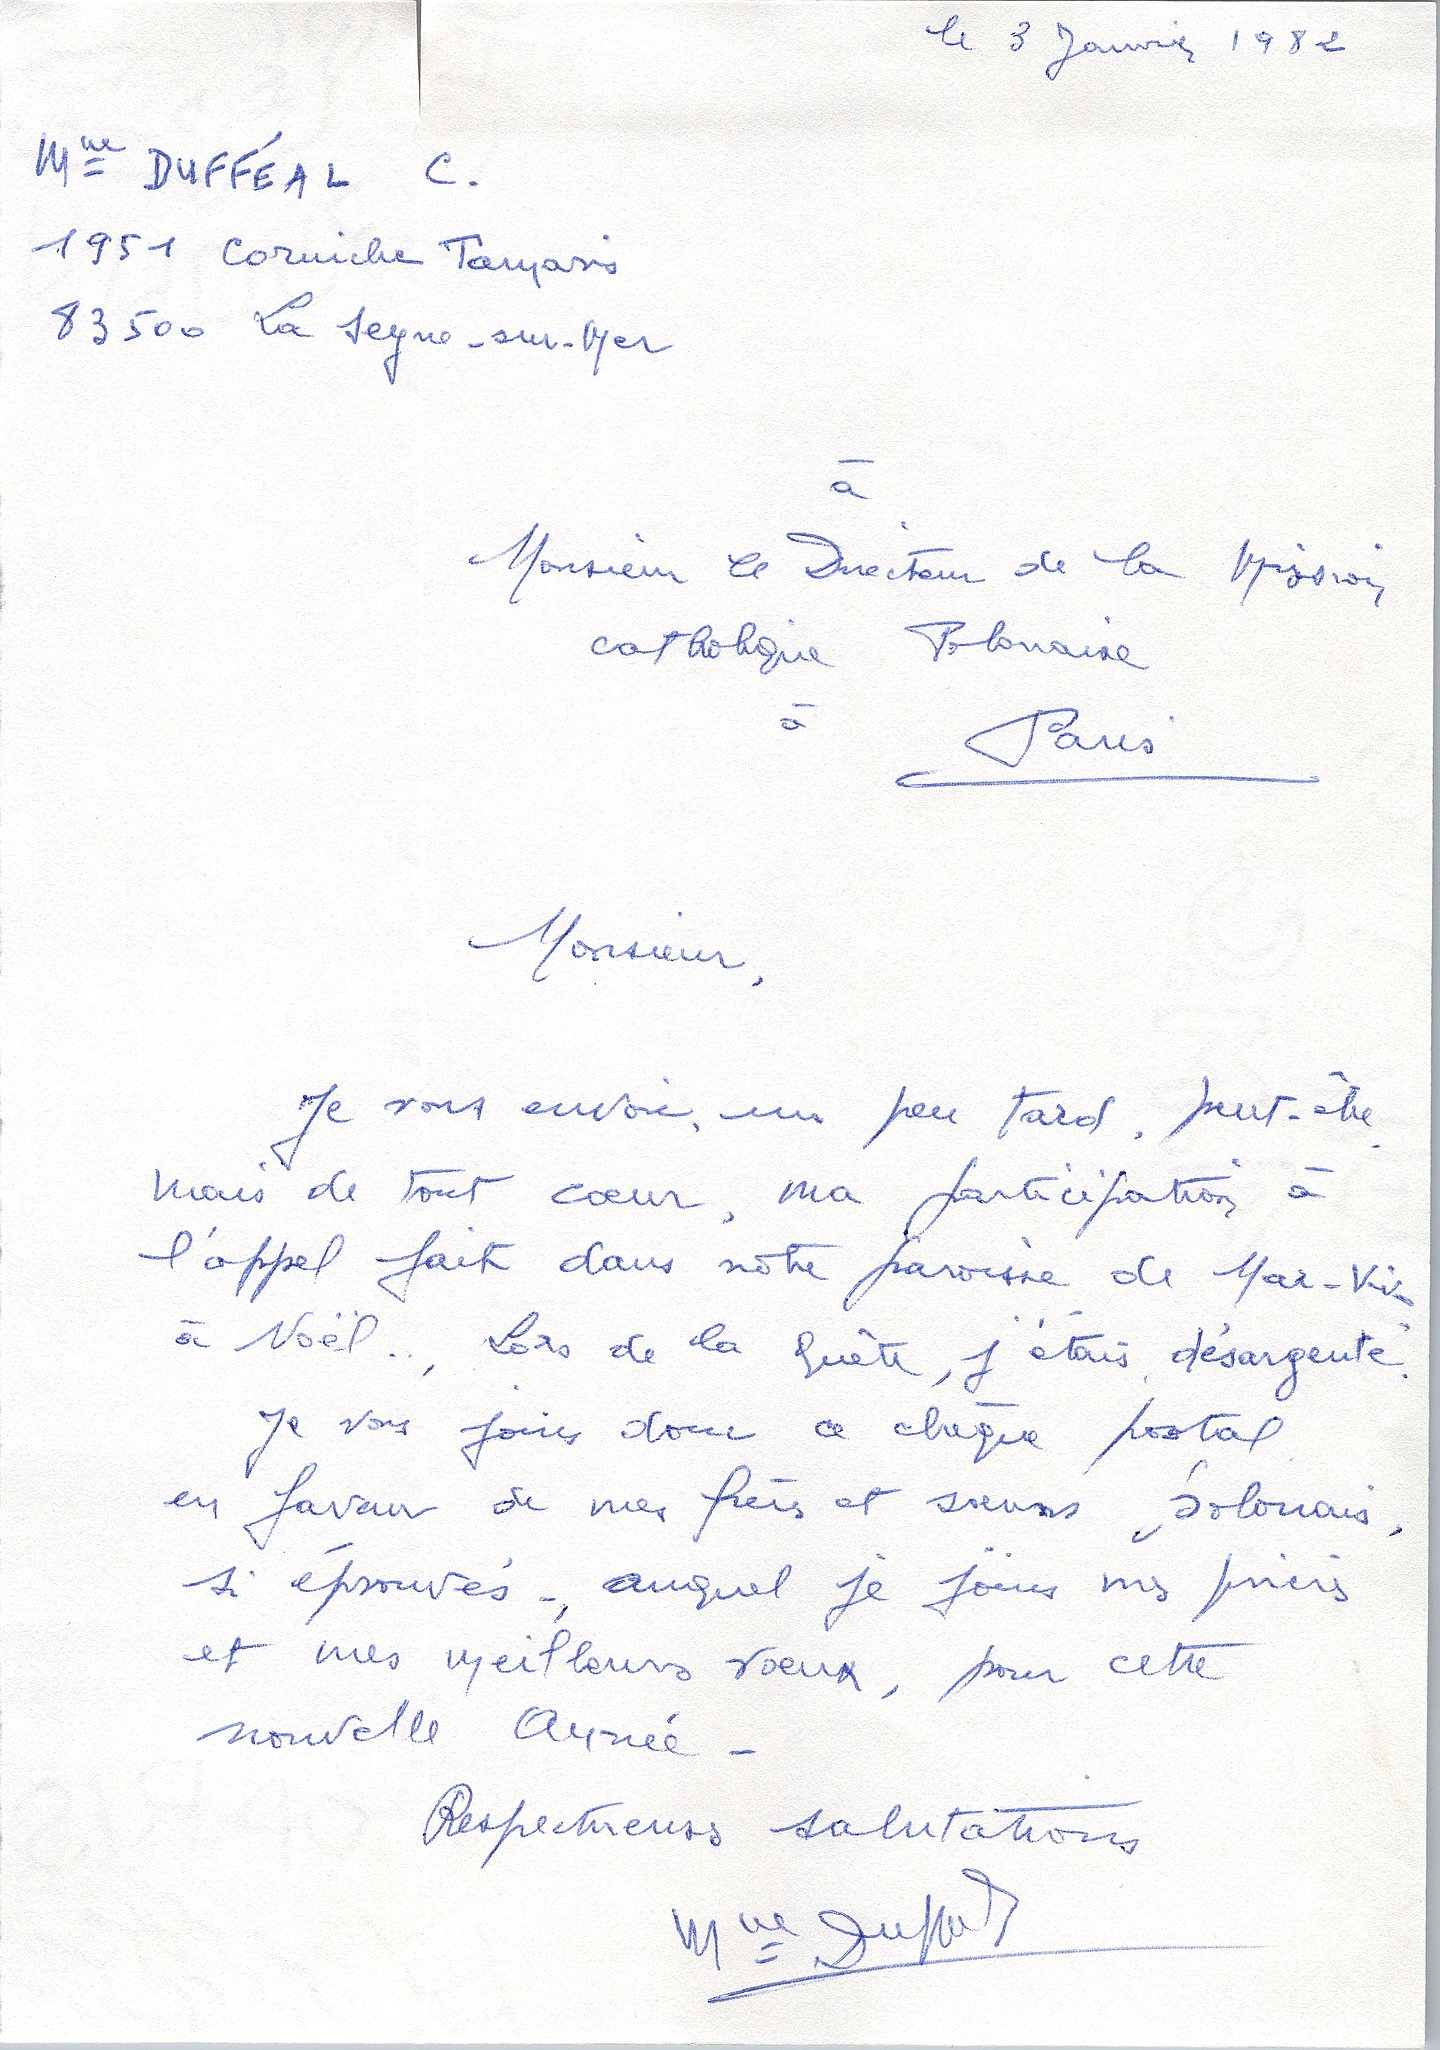 le 3 Janvier 1982
Mme DUFFÉAL C.
1951 Corniche Tamaris
83500 La Seyne-sur-Mer
à
Monsieur le Directeur de la Mission
catholique Polonaise
à Paris
Monsieur,
Je vous envoie, un peu tard, peut-être,
mais de tout cœur, ma participation à
l'appel fait dans notre paroisse de Mar-Vivo
à Noël.., Lors de la quête, j'étais désargentée.
Je vous joins donc ce chèque postal
en faveur de mes frères et sœurs Polonais,
si éprouvés -, auquel je joins mes prières
et mes meilleurs vœux, pour cette
nouvelle Année -
Respectueuses salutations
Mme